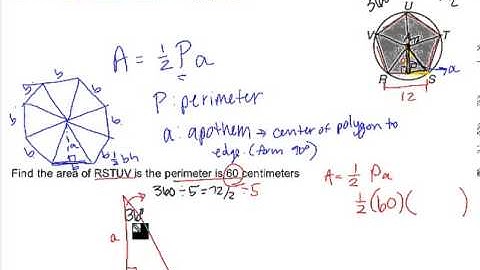 A = ½ Pa
P: perimeter
a: apothem → center of polygon to
edge. (form 90°)
b
b
b
b
b
b
b
b
a
½ bh
U
V
T
R
S
a
12
Find the area of RSTUV is the perimeter is 60 centimeters
360 ÷ 5 = 72/2 ÷ 5
36°
a
A = ½ Pa
½ (60)( )